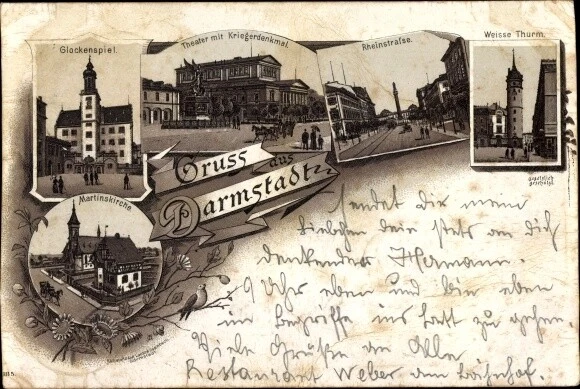 Glockenspiel.
Theater mit Kriegerdenkmal.
Rheinstraße.
Weisse Thurm.
gesetzlich
geschützt.
Gruss aus
Darmstadt
Martinskirche
sendet Dir mein
Liebchen dein stets an dich
denkender Hermann.
9 Uhr eben und bin eben
im Begriffe ins Bett zu gehen.
Viele Grüße an Alle
Restaurant Weber am Bahnhof.